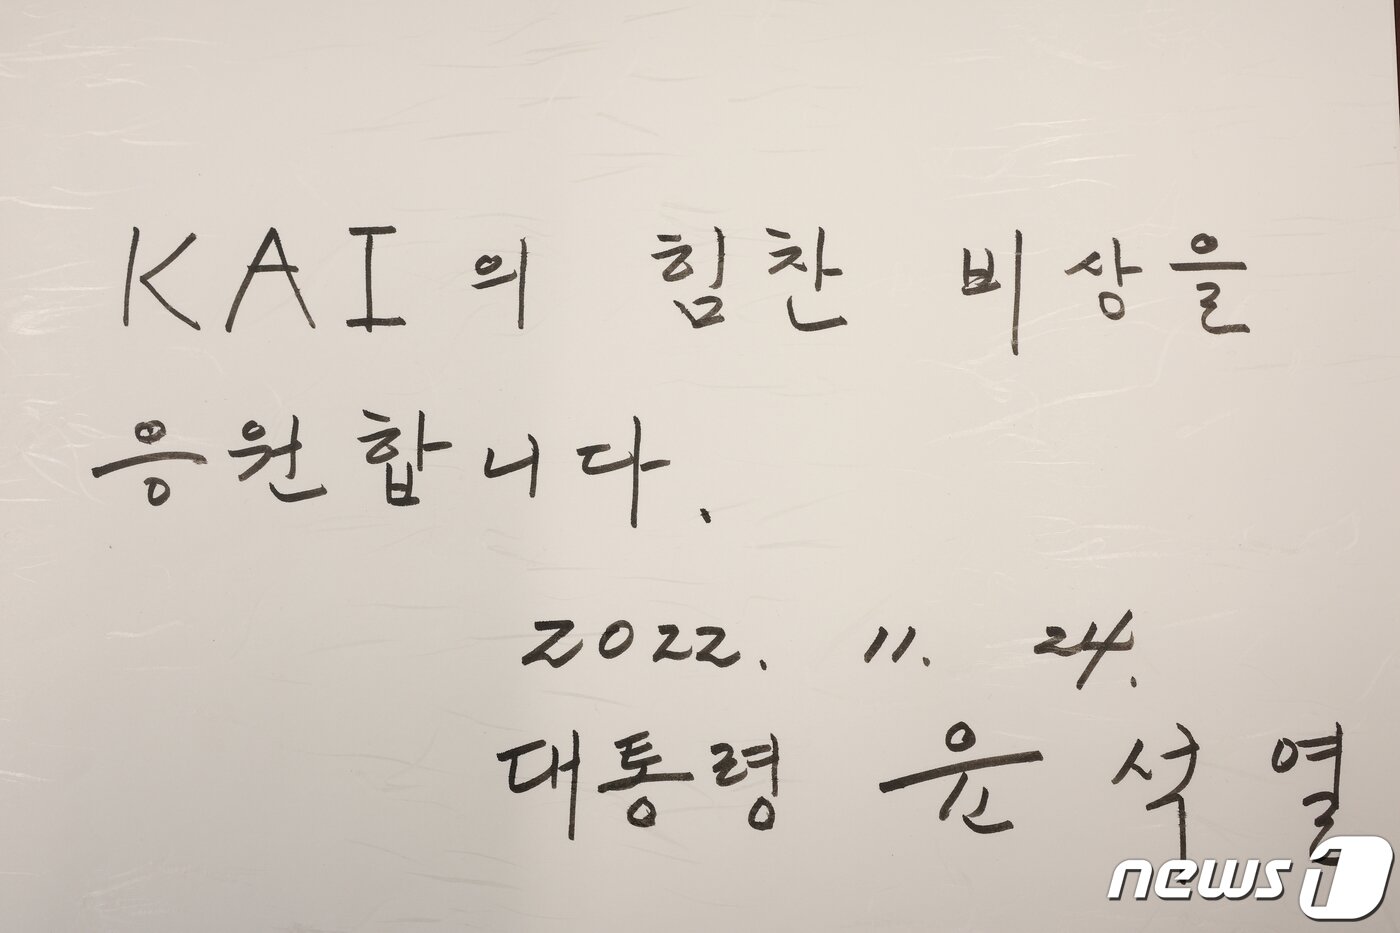 KAI의 힘찬 비상을
응원합니다.
2022. 11. 24.
대통령 윤석열
news1